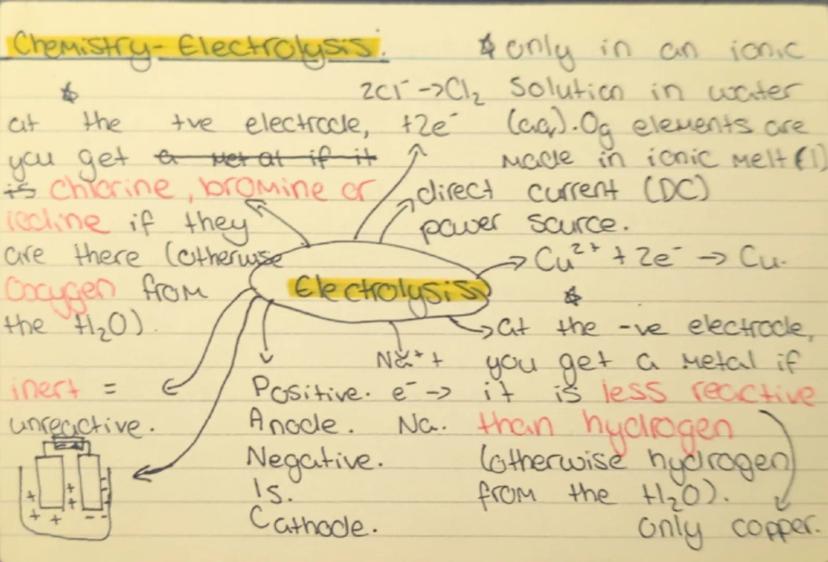 Chemistry - Electrolysis.
* only in an ionic
solution in water
(aq). Og elements are
made in ionic melt (l)
*
at the +ve electrode,
you get a metal if it
is chlorine, bromine or
iodine if they
are there (otherwise
oxygen from
the H₂O).
2Cl⁻ -> Cl₂
+2e⁻
direct current (DC)
power source.
Cu²⁺ + 2e⁻ -> Cu.
Electrolysis
*
at the -ve electrode,
you get a metal if
it is less reactive
than hydrogen
(otherwise hydrogen
from the H₂O).
only copper.
Na⁺ +
e⁻ ->
Na.
Positive.
Anode.
Negative.
Is.
Cathode.
inert =
unreactive.
+ + + + + - -